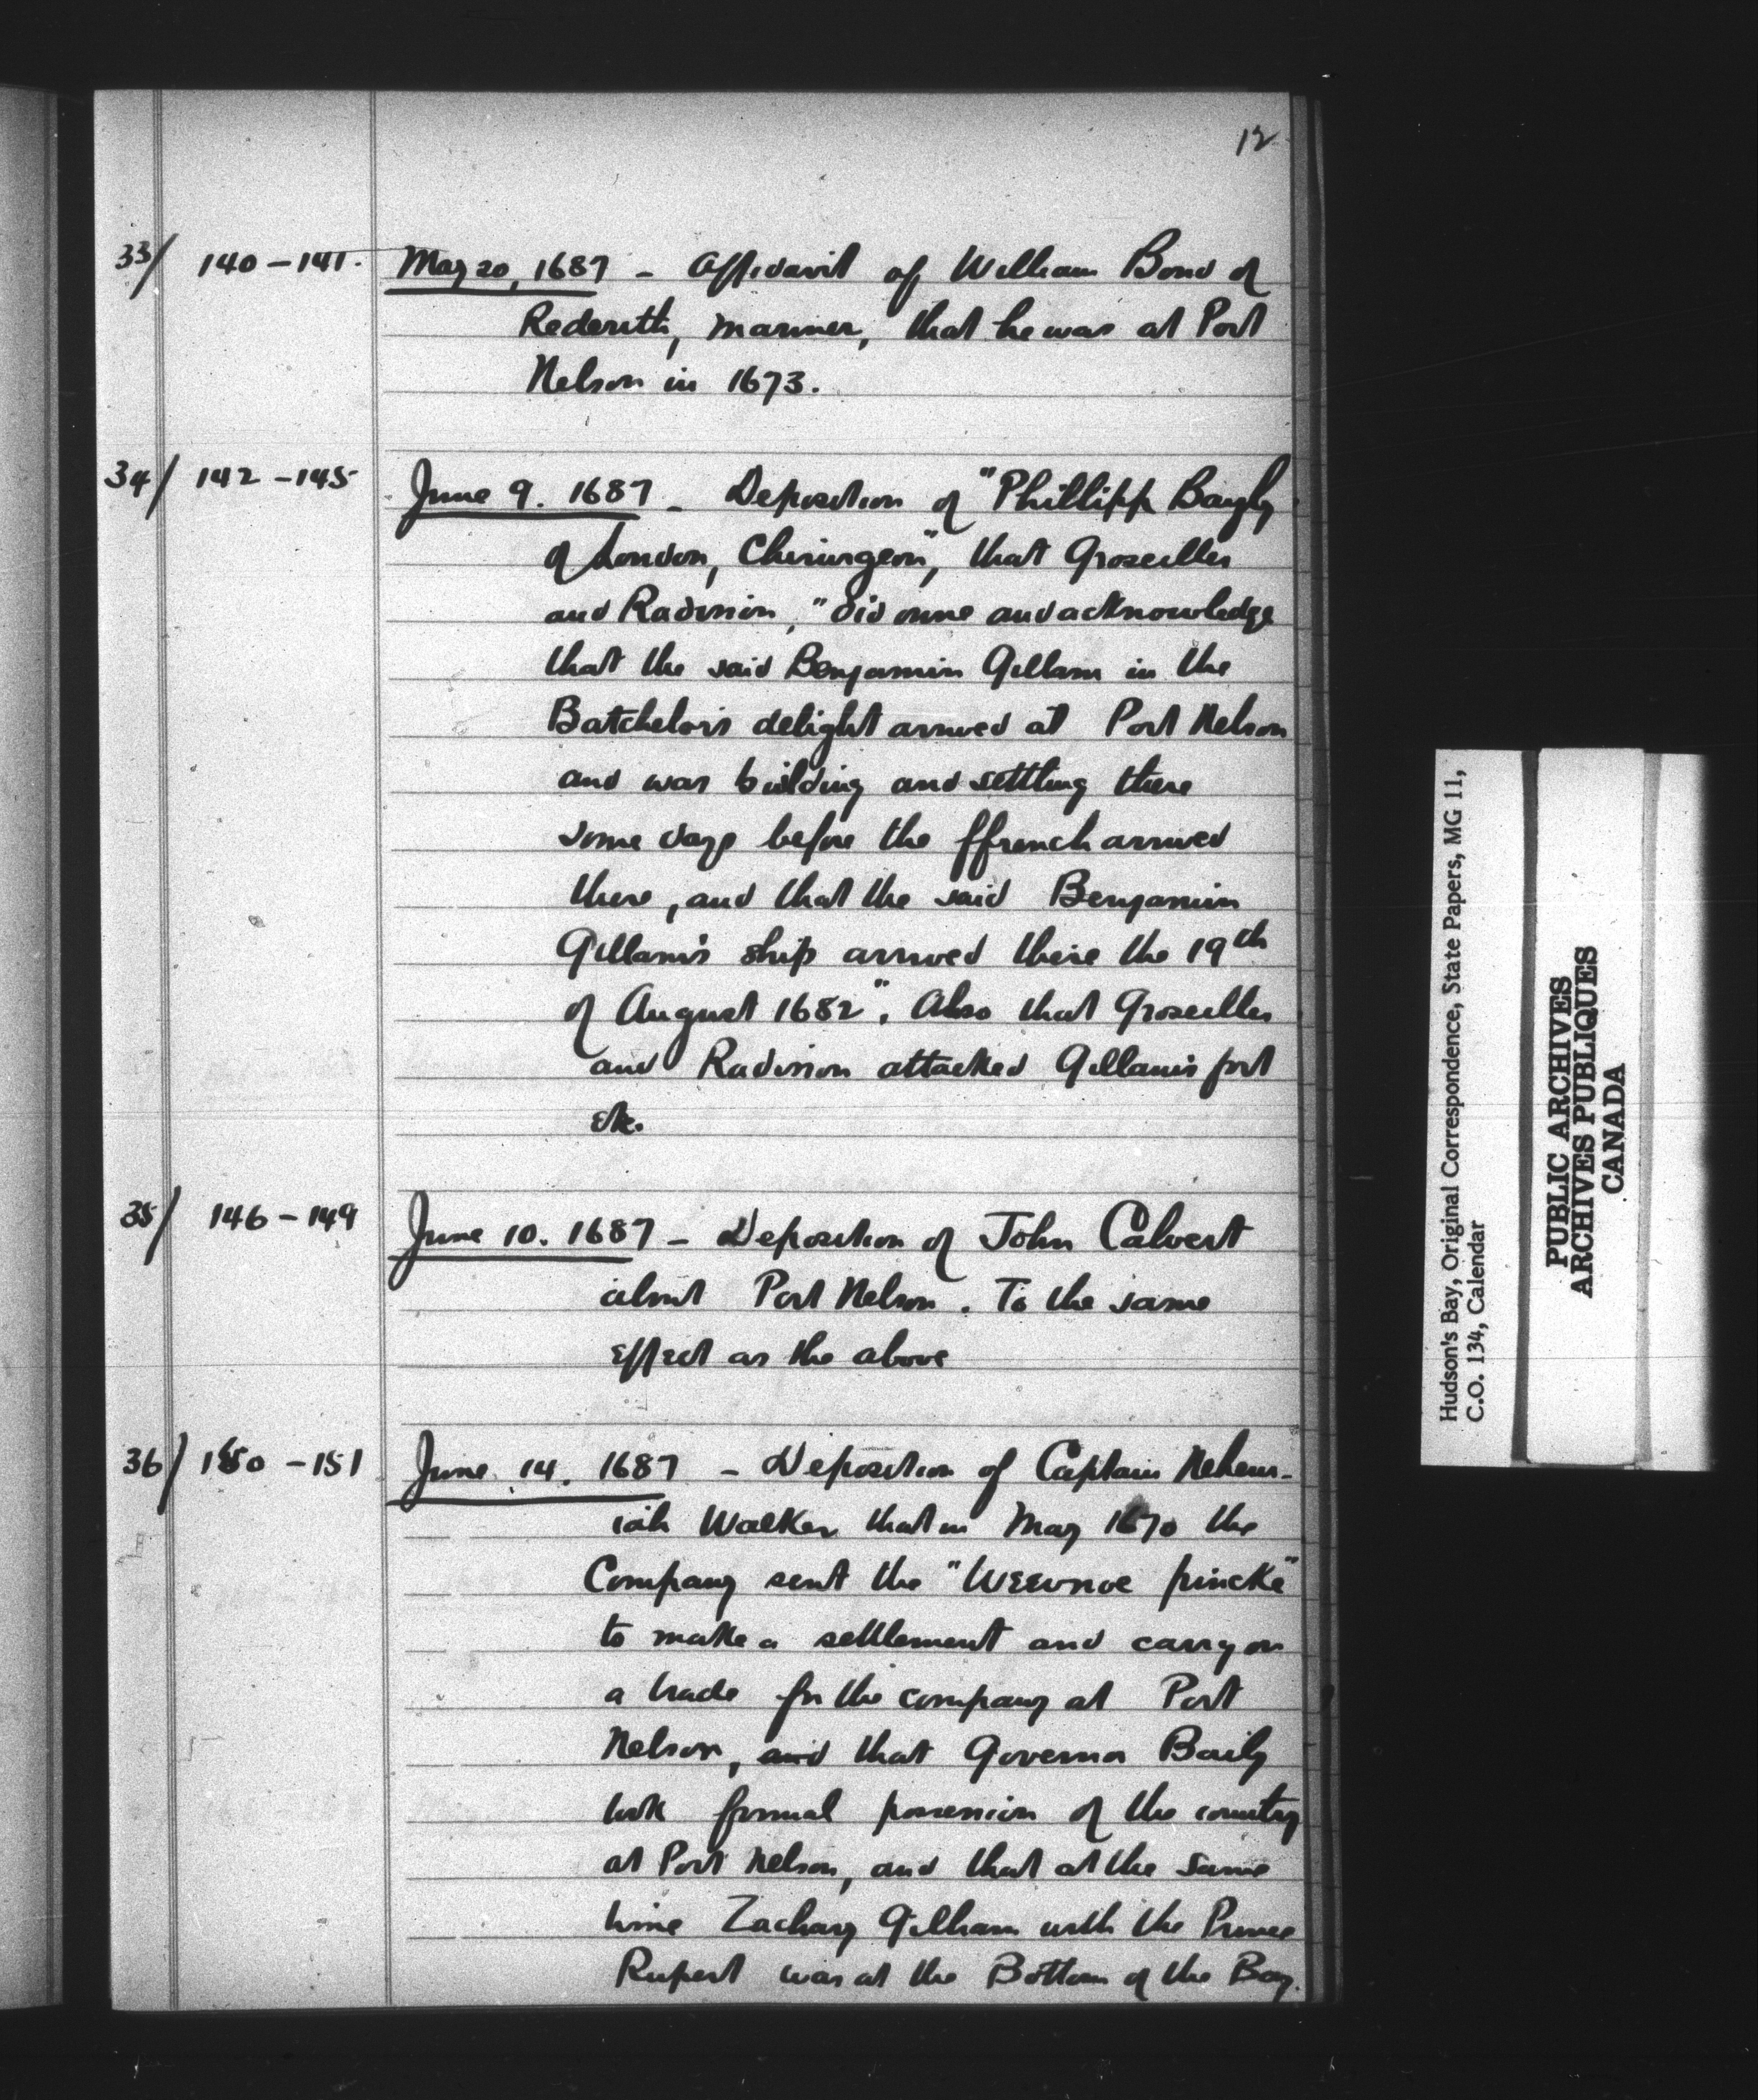 12
33/ 140-141. May 20, 1687 - Affidavit of William Bond of
Rederith, mariner, that he was at Port
Nelson in 1673.
34/ 142-145 June 9. 1687 - Deposition of "Phillipp Bayly
of London, Chirurgeon", that Groseilles
and Radisson, "did owne and acknowledge
that the said Benjamin Gillam in the
Batchelor's delight arrived at Port Nelson
and was building and settling there
some days before the ffrench arrived
there, and that the said Benjamin
Gillam's ship arrived there the 19th
of August 1682". Also that Groseilles
and Radisson attacked Gillam's fort
etc.
35/ 146-149 June 10. 1687 - Deposition of John Calvert
about Port Nelson. To the same
effect as the above
36/ 150-151 June 14. 1687 - Deposition of Captain Nehem-
iah Walker that in May 1670 the
Company sent the "Weevnoe pincke"
to make a settlement and carry on
a trade for the company at Port
Nelson, and that Governor Baily
took formal possession of the country
at Port Nelson, and that at the same
time Zachary Gilham with the Prince
Rupert was at the Bottom of the Bay.
Hudson's Bay, Original Correspondence, State Papers, MG 11,
C.O. 134, Calendar
PUBLIC ARCHIVES
ARCHIVES PUBLIQUES
CANADA